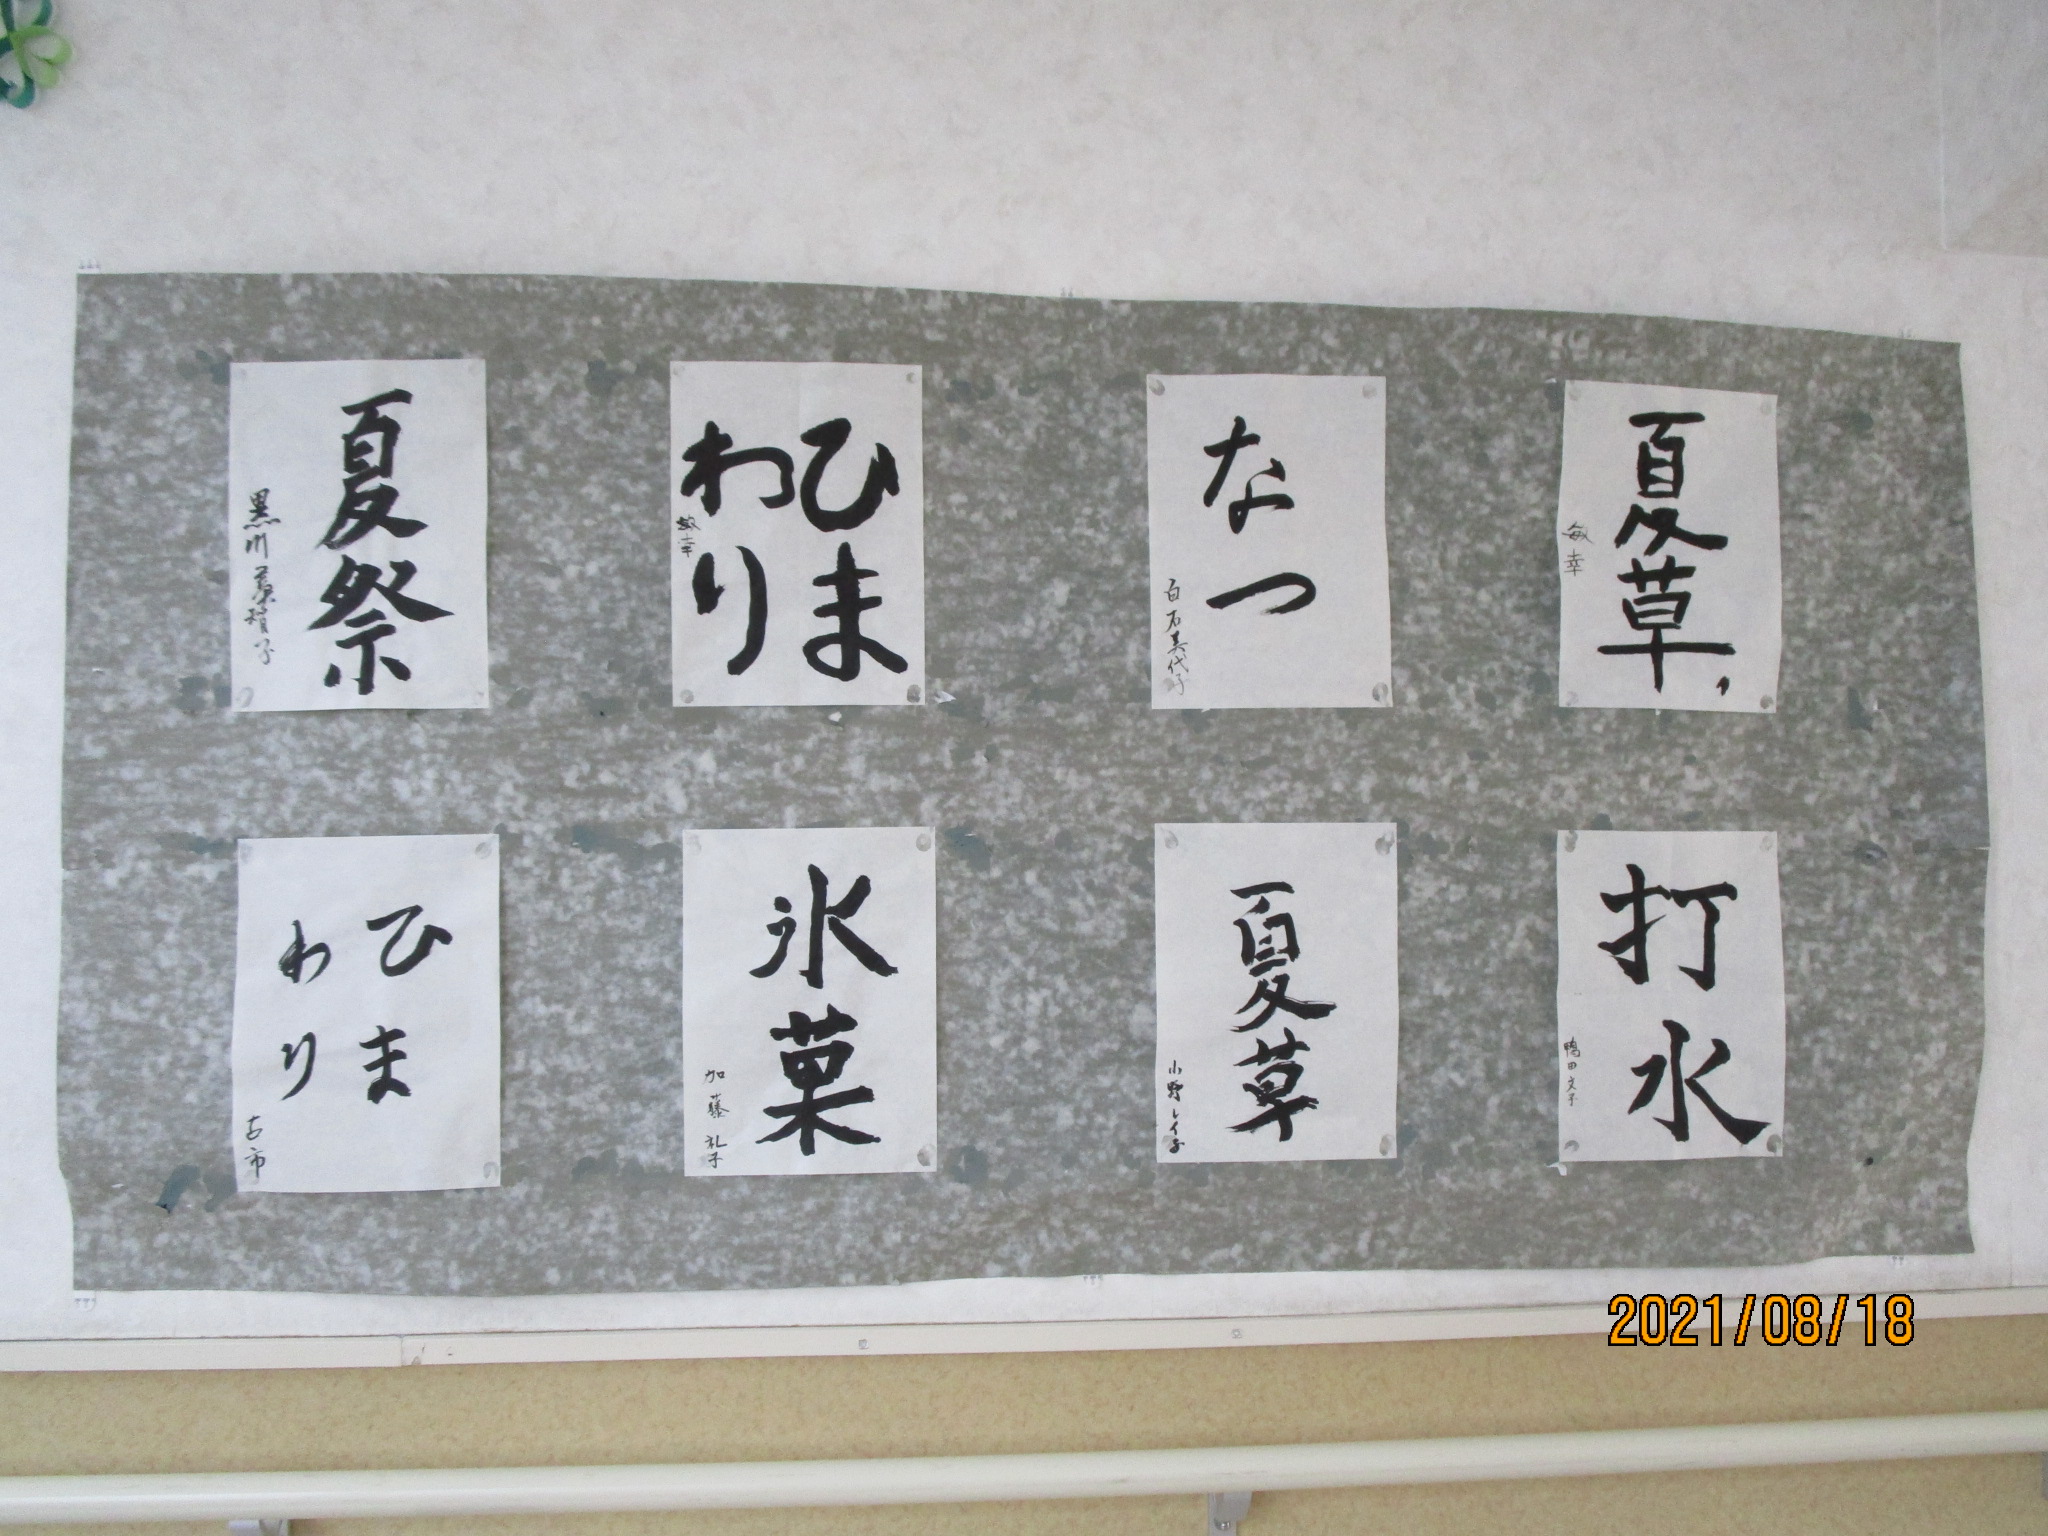 夏草
敏幸
なつ
白石美代子
ひま
わり
敏幸
夏祭
黒川
打水
鴨田文子
夏草
小野レイ子
氷菓
加藤礼子
ひま
わり
古市
2021/08/18